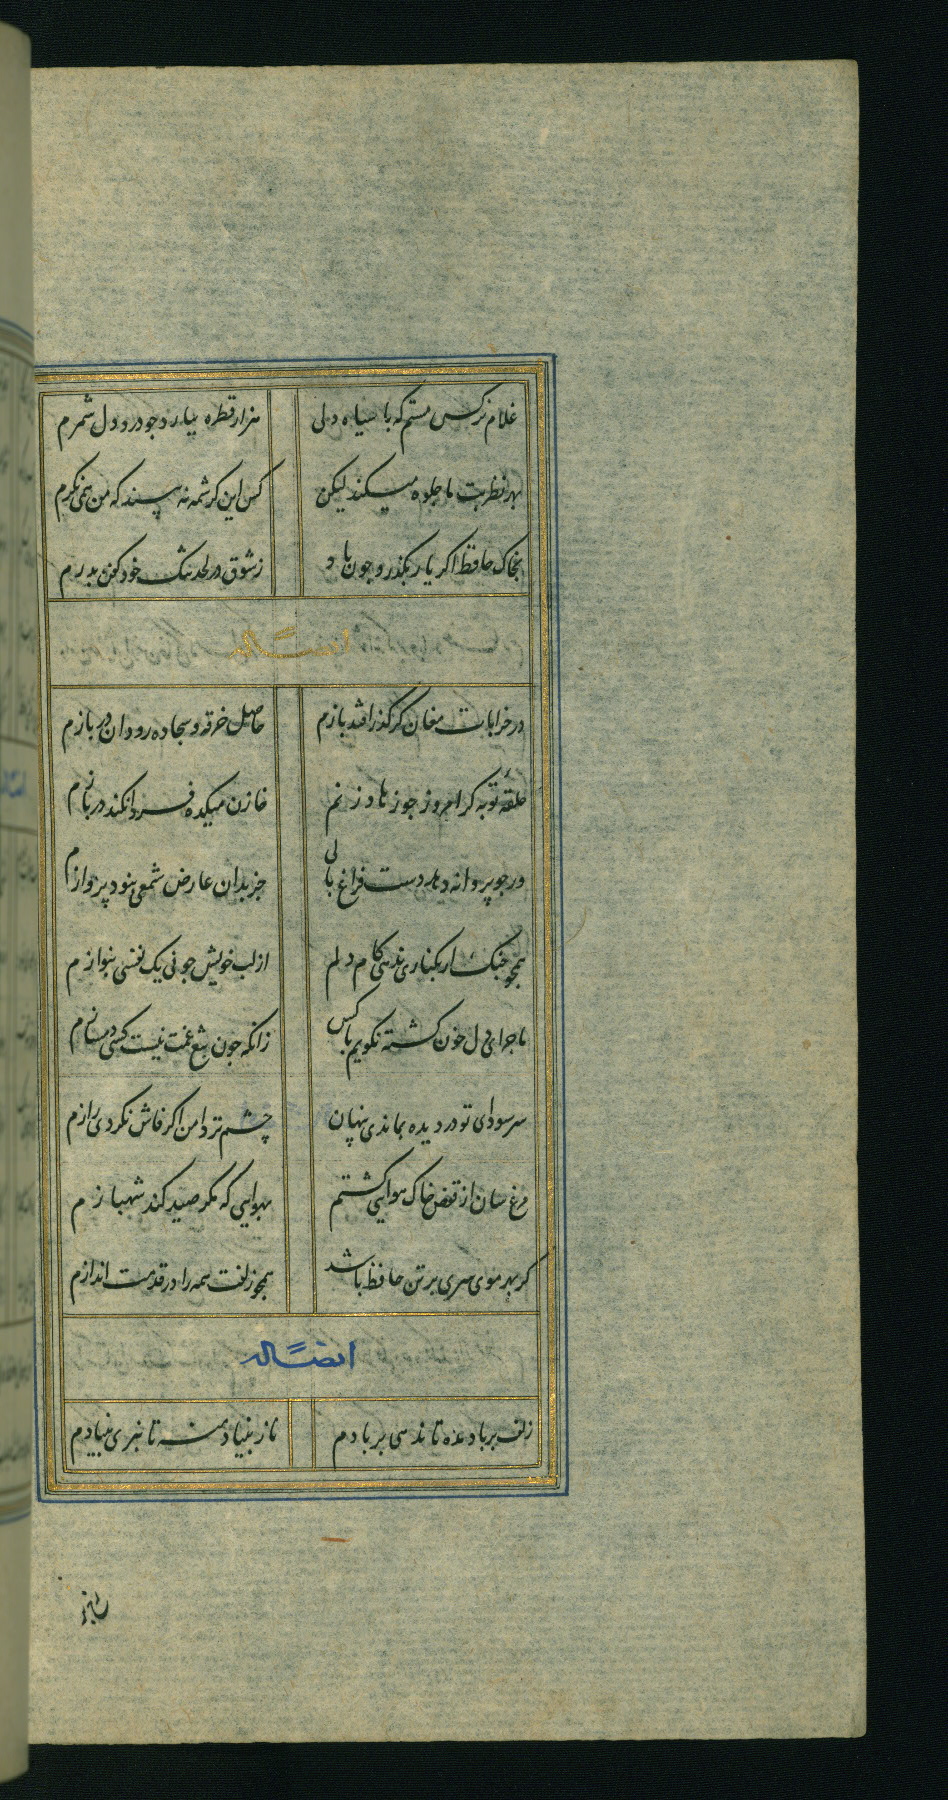 غلام نرکس مستم که با سیاه دلی هزار قطره ببارد چو درد دل شمرم
بهر نظر بت ما جلوه میکند لیکن کس این کرشمه نه بیند که من همی نکرم
بخاک حافظ اکر یار بکذرد چون باد ز شوق در لحد تنک خود کفن بدرم
ایضاً له
در خرابات مغان کر کذر افتد بازم حاصل خرقه و سجاده روان در بازم
حلقه توبه کر امروز چو زهاد زنم خازن میکده فردا نکند در بازم
ور چو پروانه دهد دست فراغ بالی جز بدان عارض شمعی بنود پروازم
همچو چنک ار بکناری ندهی کام دلم از لب خویش چو نی یک نفسی بنوازم
ماجرای دل خون کشته نکویم باکس زانکه چون تیغ غمت نیست کسی دمسازم
سر سودای تو در دیده بماندی پنهان چشم تر دامن اکر فاش نکردی رازم
مرغ سان از قفس خاک هوایی کشتم بهوایی که مکر صید کند شهبازم
کر بهر موی سری بر تن حافظ باشد همچو زلفت همه را در قدمت اندازم
ایضاً له
زلف بر باد مده تا ندهی بر بادم ناز بنیاد منه تا نبری بنیادم